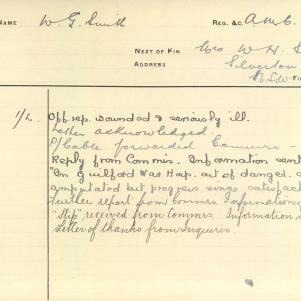 NAME W. G. Smith REG. &C. A.M.C.
NEXT OF KIN Mrs W. H. S
ADDRESS Silverton
N.S.W
1/2. Off. rep. wounded & seriously ill.
Letter acknowledged.
P/Cable forwarded Commrs -
Reply from Commrs. Information sent
"In Guilford War Hosp. out of danger.
amputated but progress being satisfact
further report from commrs. Information
"Ship" received from Commrs. Information
Letter of thanks from Inquirer.